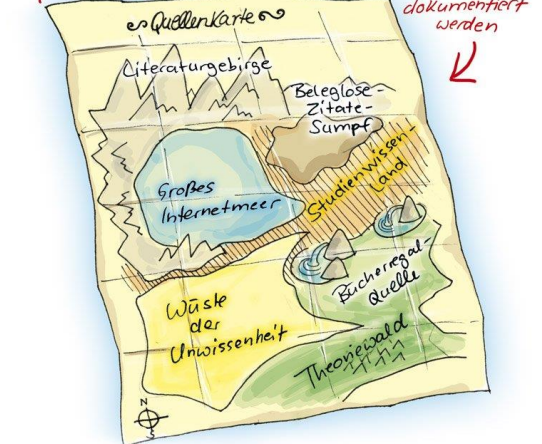 dokumentiert
werden
Quellenkarte
Literaturgebirge
Beleglose-
Zitate-
Sumpf
Großes
Internetmeer
Studienwissen-
Land
Bücherregal-
Quelle
Wüste
der
Unwissenheit
Theoriewald
N
S